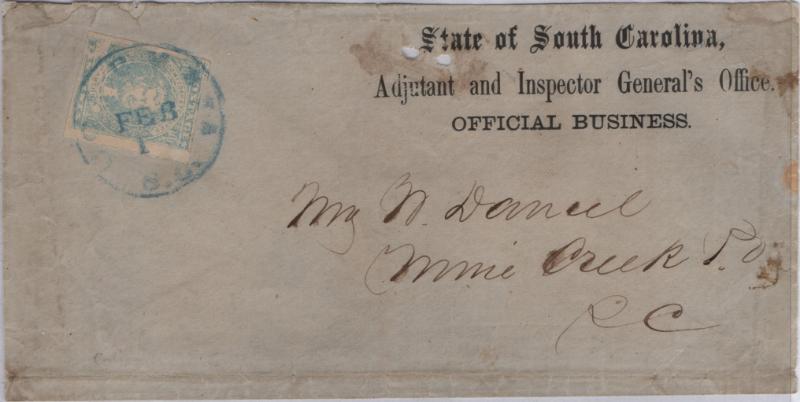 State of South Carolina,
Adjutant and Inspector General's Office.
OFFICIAL BUSINESS.
COLUMBIA
FEB
1
S.C.
W. Daniel
Mine Creek P.O
S C